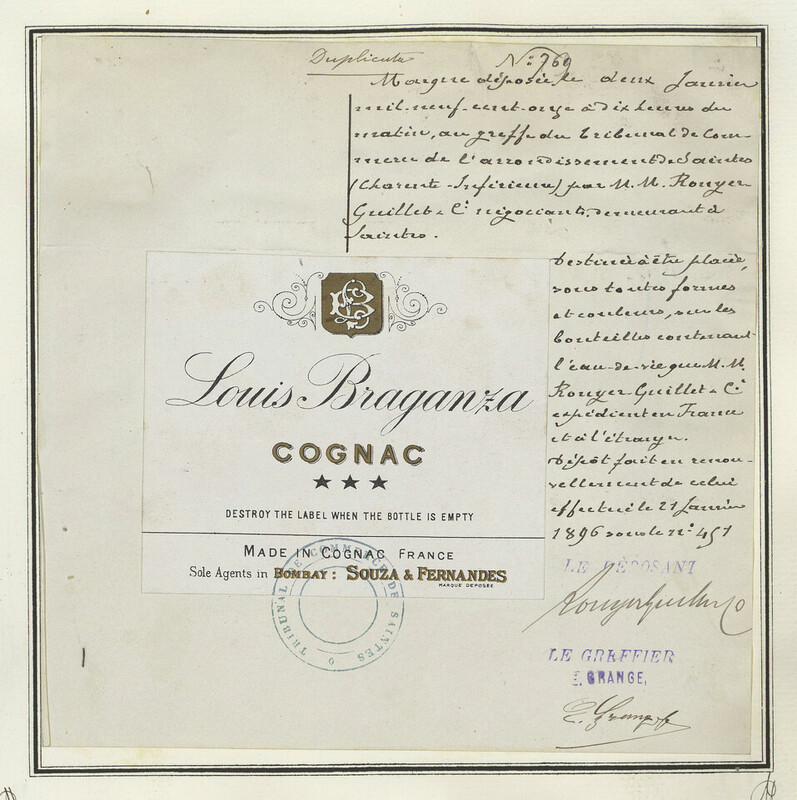 Duplicata
N° 769
Marque déposée le deux Janvier
mil neuf cent onze à dix heures du
matin, au greffe du Tribunal de Com-
merce de l'arrondissement de Saintes
(Charente-Inférieure) par M.M. Rouyer
Guillet & Cie négociants, demeurant à
Saintes.
Destinée à être placée,
sous toutes formes
et couleurs, sur les
bouteilles contenant
l'eau-de-vie que M.M.
Rouyer Guillet & Cie
expédient en France
et à l'étranger.
Dépôt fait en renou-
vellement de celui
effectué le 21 Janvier
1896 sous le n° 451
LE DÉPOSANT
Rouyer Guillet & Co
LE GREFFIER
E. GRANGE,
LB
Louis Braganza
COGNAC
DESTROY THE LABEL WHEN THE BOTTLE IS EMPTY
MADE IN COGNAC FRANCE
Sole Agents in BOMBAY: SOUZA & FERNANDES
MARQUE DEPOSÉE
TRIBUNAL DE COMMERCE DE SAINTES